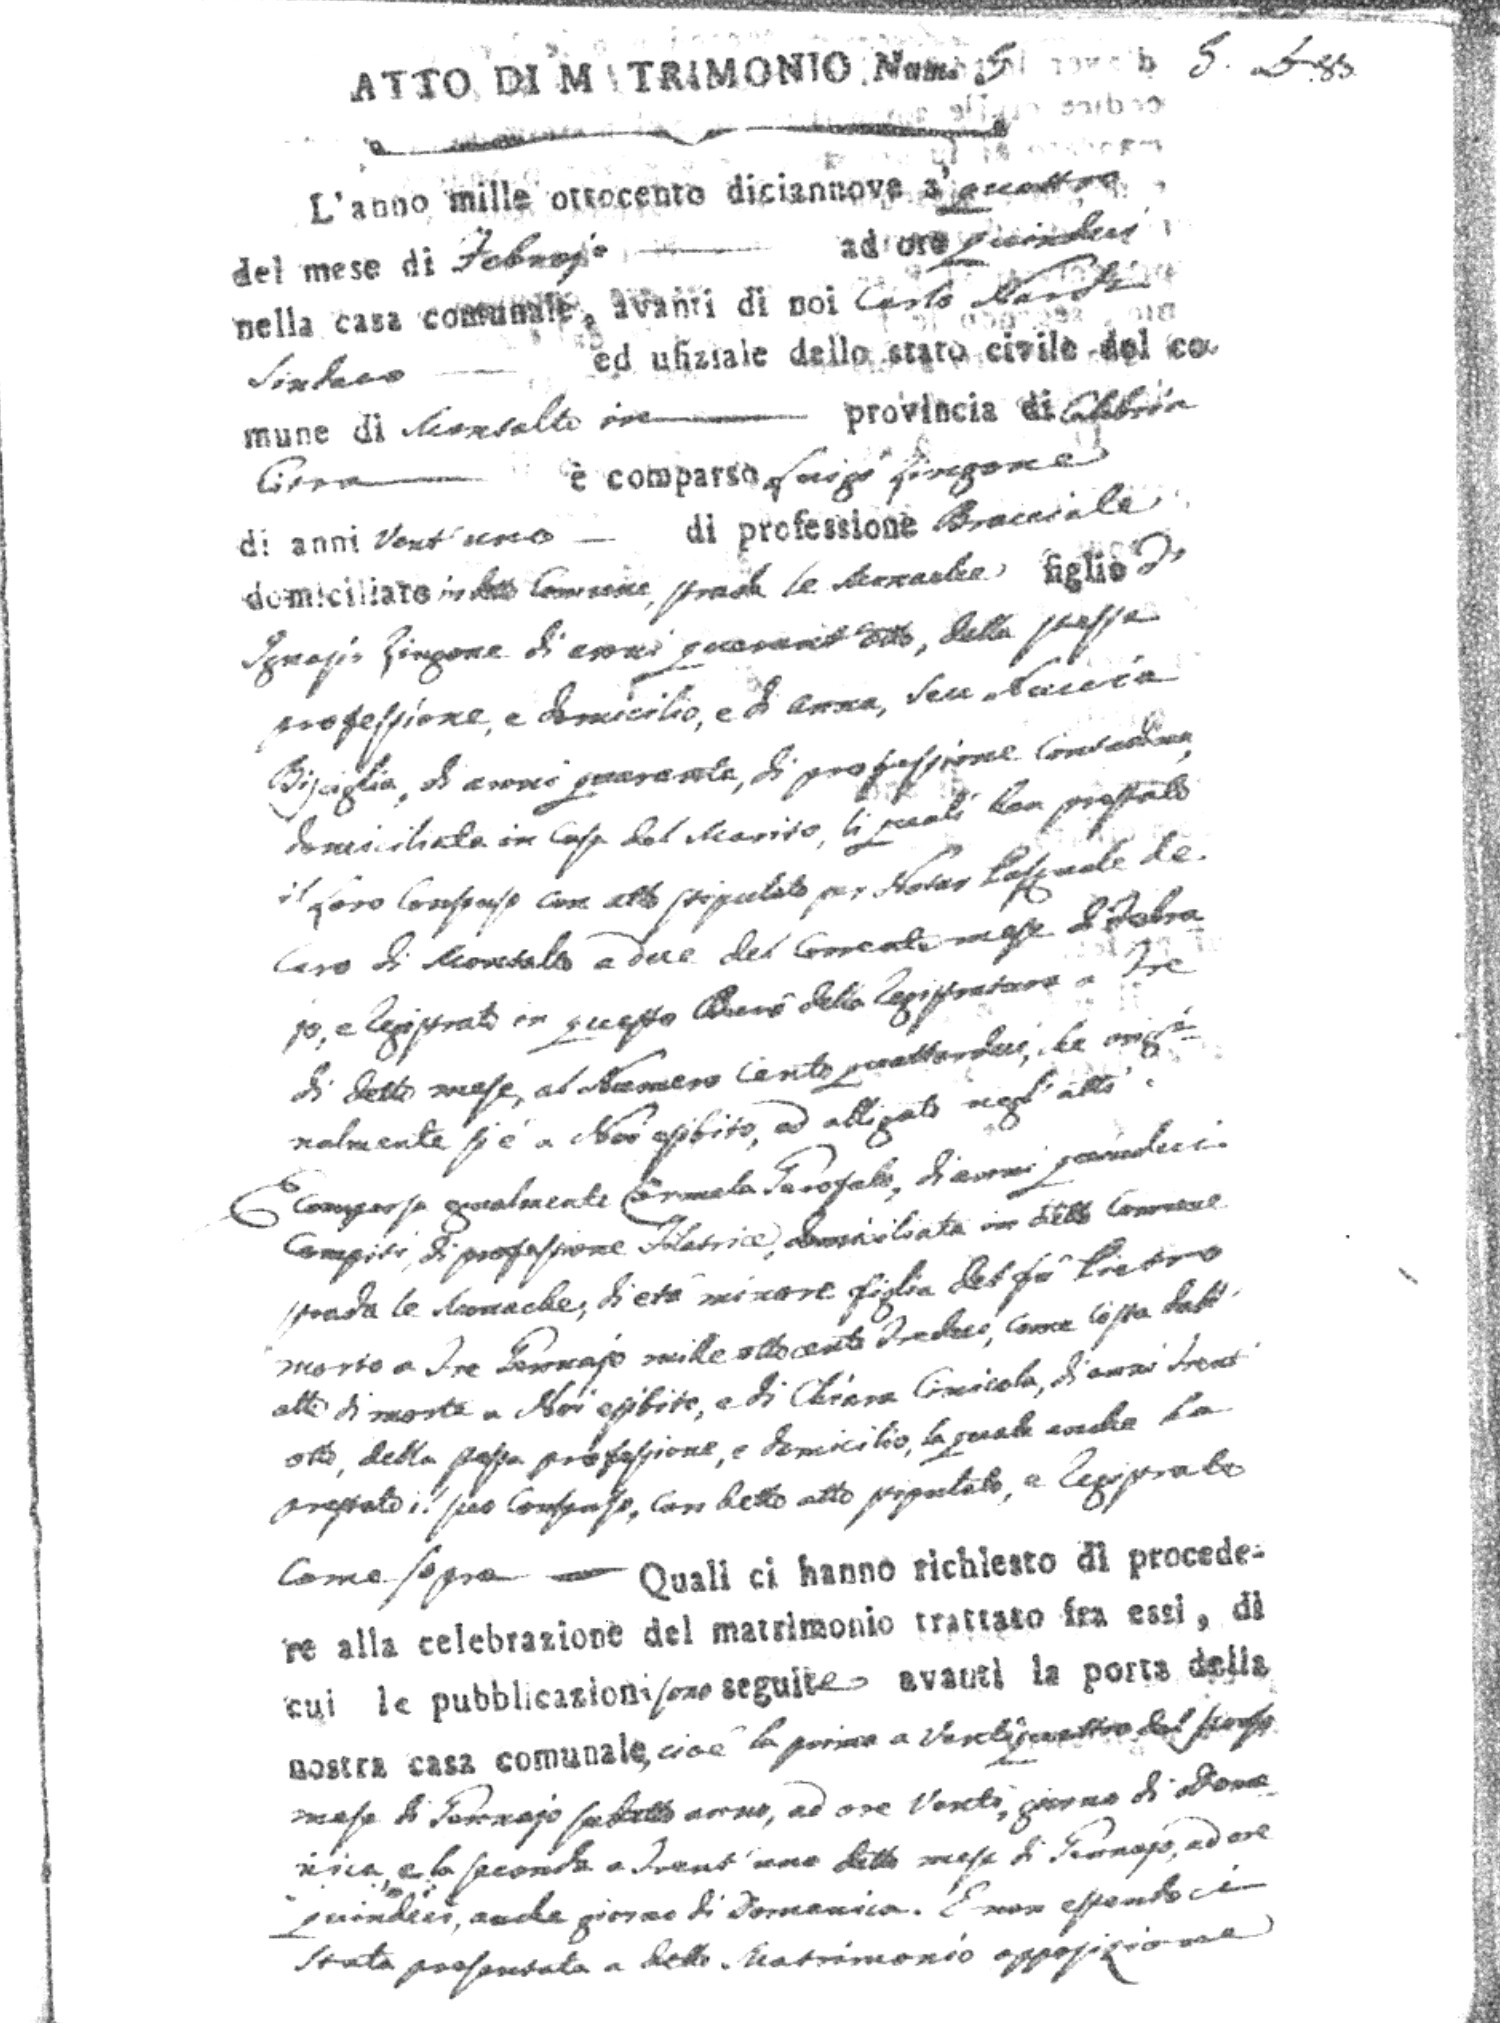 ATTO DI MATRIMONIO Num. 5 5.
L'anno mille ottocento diciannove a' quattro
del mese di Febrajo ad ore quindeci
nella casa comunale, avanti di noi Carlo Nardi
Sindaco ed ufiziale dello stato civile del co-
mune di Montalto in provincia di Calabria
Citra è comparso Luigi Zingone
di anni Vent'uno di professione Bracciale
domiciliato in detto Comune, strada le Monache figlio di
Ignazio Zingone di anni quarant'otto, della stessa
professione, e domicilio, e di Anna, seu Nuccia
Bisciglia, di anni quaranta, di professione Contadina,
domiciliata in Casa del Marito, li quali han prestato
il loro Consenso con atto stipulato per Notar Pasquale de
Caro di Montalto a due del corrente mese di Febra
jo, e registrato in questo Burò della registratura a tre
di detto mese, al Numero Cento quattordeci, che origi-
nalmente si è a Noi esibito, ed alligato negl'atti.
E comparsa egualmente Carmela Garofalo, di anni quindeci
Compiti, di professione Filatrice, domiciliata in detto Comune
strada le Monache, di età minore figlia del fù Pietro
morto a tre Gennajo mille ottocento tredeci, come costa dall'
atto di morte a Noi esibito, e di Chiara Cimicola, di anni trent'
otto, della stessa professione, e domicilio, la quale anche ha
prestato il suo Consenso, con detto atto stipulato, e registrato
Come sopra Quali ci hanno richiesto di procede-
re alla celebrazione del matrimonio trattato fra essi, di
cui le pubblicazioni sono seguite avanti la porta della
nostra casa comunale, cioè la prima a Ventiquattro del scorso
mese di Gennajo sudetto anno, ad ore Venti, giorno di Dome-
nica, e la seconda a trent'uno detto mese di Gennajo, ad ore
quindeci, anche giorno di Domenica. E non essendoci
stata presentata a detto Matrimonio opposizione